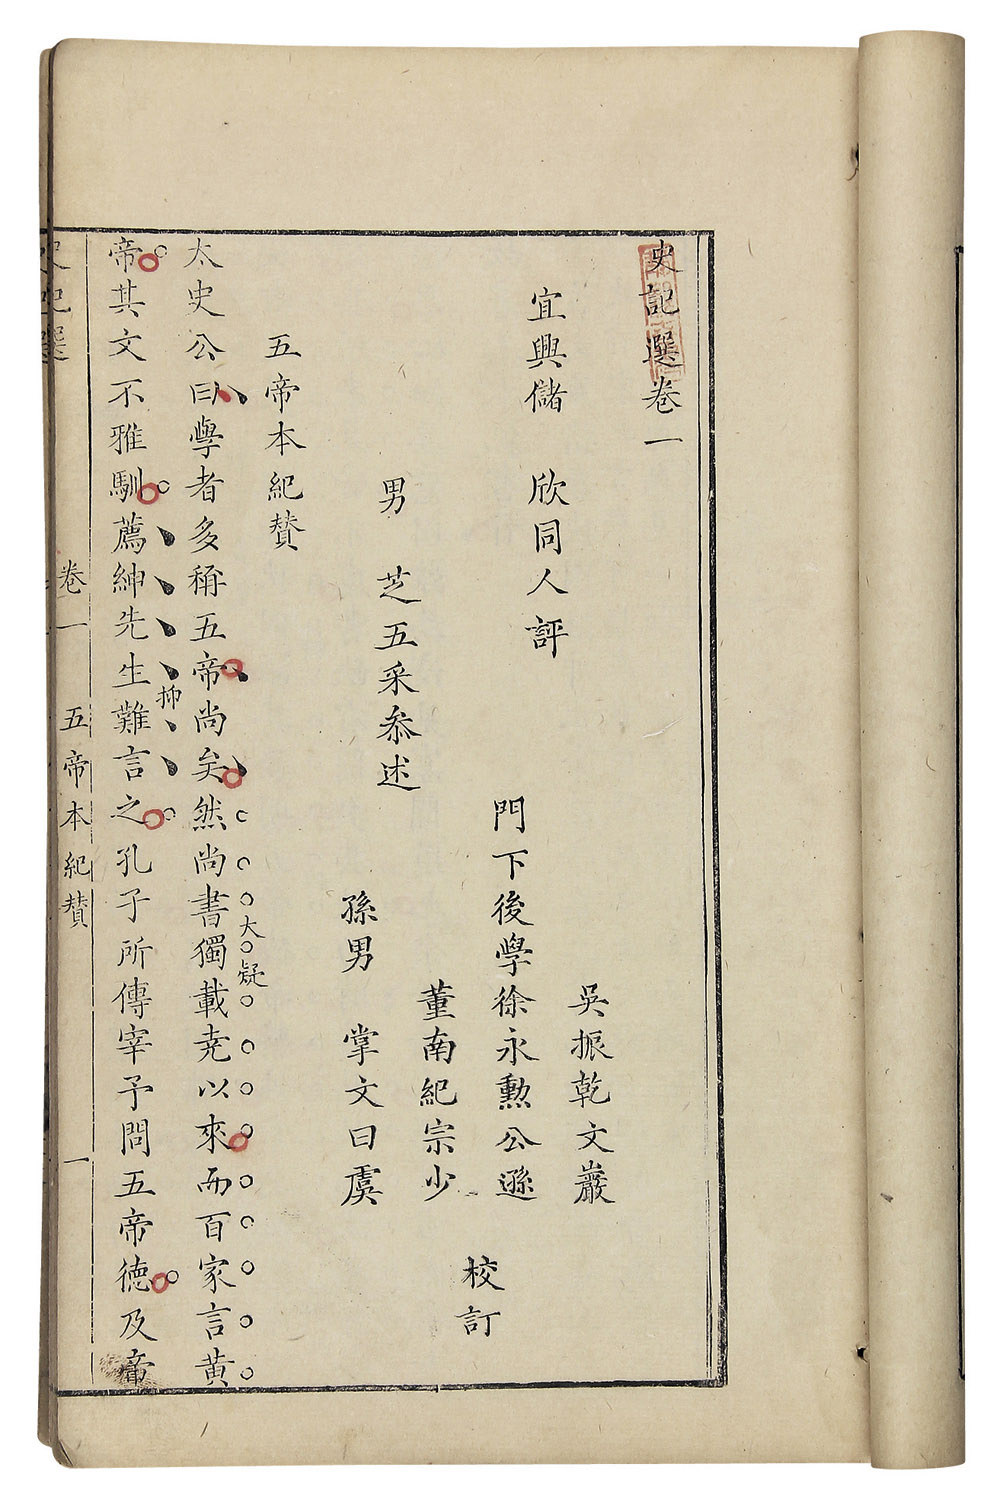 史記選卷一
宜興儲 欣同人評
男 芝五采叅述
吳振乾文巖
門下後學徐永勲公遜
董南紀宗少
孫男 掌文曰虞
校訂
五帝本紀贊
太史公曰學者多稱五帝尚矣然尚書獨載堯以來而百家言黃
大疑
帝其文不雅馴薦紳先生難言之孔子所傳宰予問五帝德及帝
抑
史記選
卷一
五帝本紀贊
一